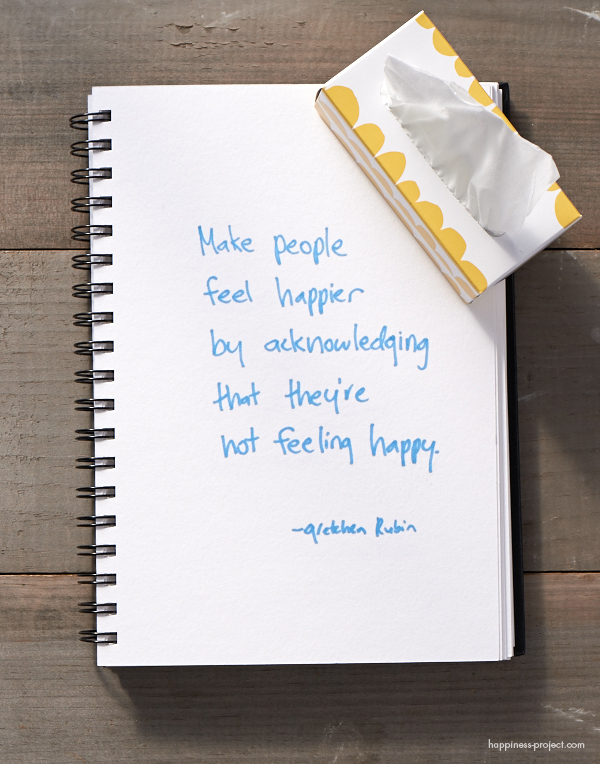 Make people
feel happier
by acknowledging
that they're
not feeling happy.
-gretchen Rubin
happiness-project.com